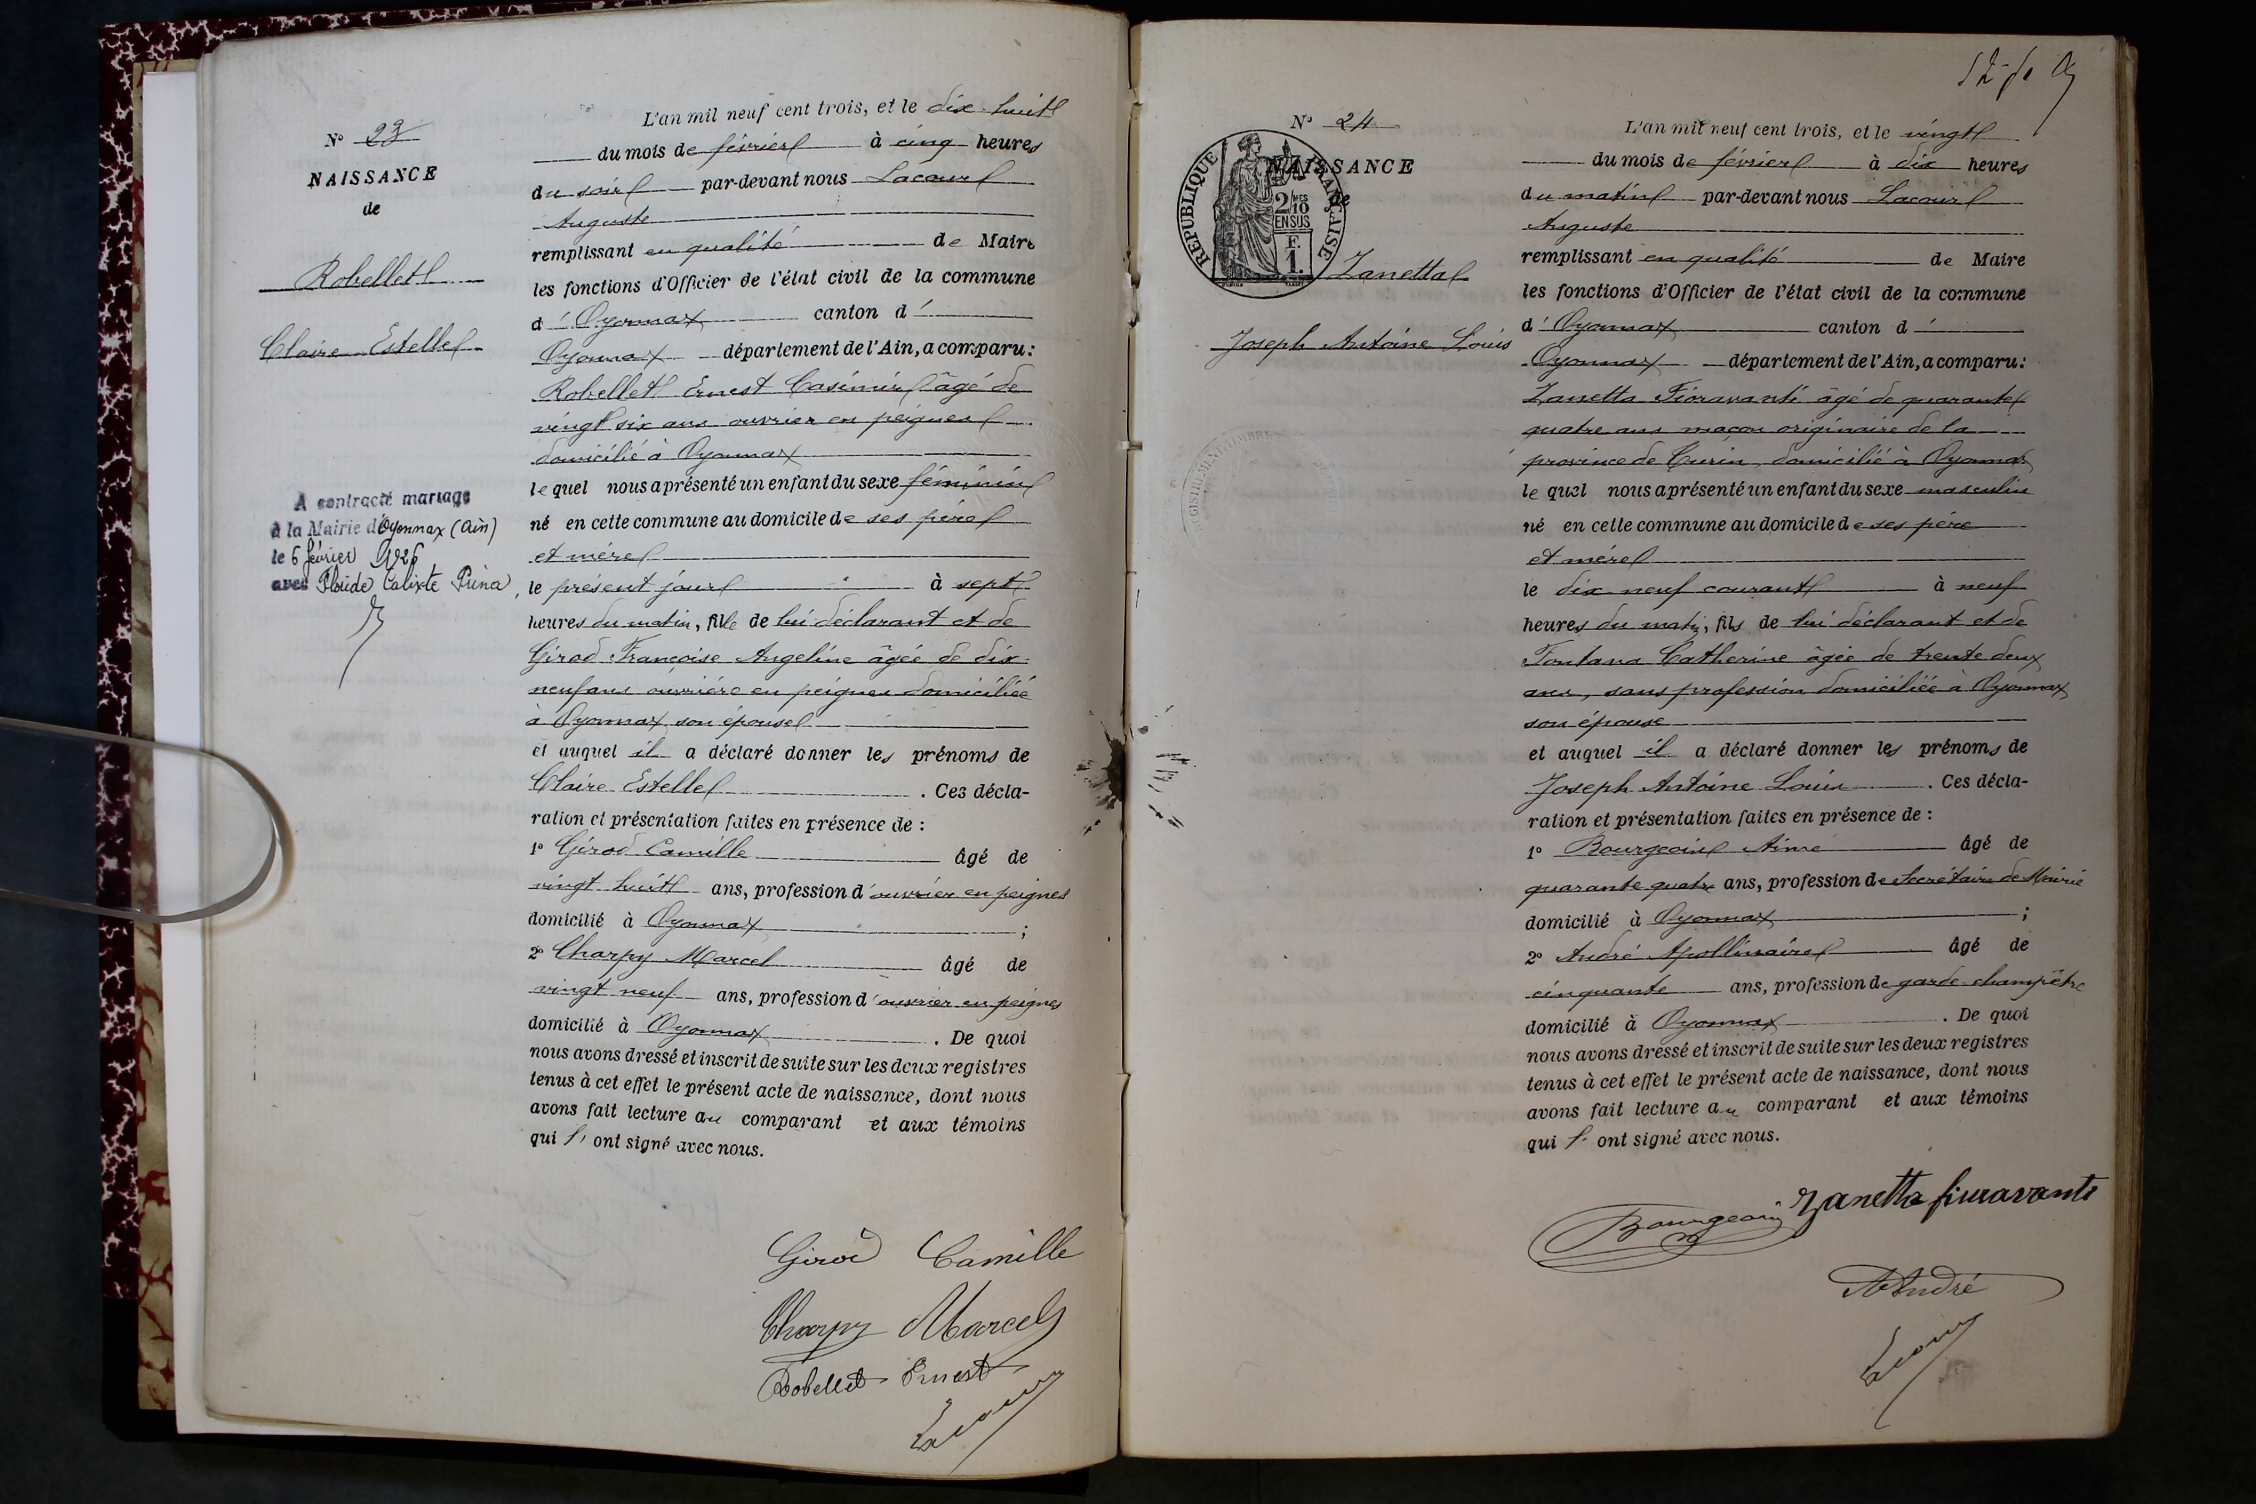 N° 23
NAISSANCE
de
Robellet
Claire Estelle
A contracté mariage
à la Mairie d'Oyonnax (Ain)
le 6 février 1926
avec Ploude Calixte Prina
L'an mil neuf cent trois, et le dix huit
du mois de février à cinq heures
du soir par-devant nous Lacour
Auguste
remplissant en qualité de Maire
les fonctions d'Officier de l'état civil de la commune
d' Oyonnax canton d'
Oyonnax département de l'Ain, a comparu :
Robellet Ernest Casimir âgé de
vingt six ans ouvrier en peignes
domicilié à Oyonnax
lequel nous a présenté un enfant du sexe féminin
né en cette commune au domicile de ses père
et mère
le présent jour à sept
heures du matin, fille de lui déclarant et de
Girod Françoise Angeline âgée de dix
neuf ans ouvrière en peignes domiciliée
à Oyonnax son épouse
et auquel il a déclaré donner les prénoms de
Claire Estelle . Ces décla-
ration et présentation faites en présence de :
1° Girod Camille âgé de
vingt huit ans, profession d'ouvrier en peignes
domicilié à Oyonnax ;
2° Charpy Marcel âgé de
vingt neuf ans, profession d'ouvrier en peignes
domicilié à Oyonnax . De quoi
nous avons dressé et inscrit de suite sur les deux registres
tenus à cet effet le présent acte de naissance, dont nous
avons fait lecture au comparant et aux témoins
qui l' ont signé avec nous.
Girod Camille
Charpy Marcel
Robellet Ernest
Lacour
N° 24
NAISSANCE
de
REPUBLIQUE FRANÇAISE
2/10 MES
EN SUS
F.
1.
Zanetta
Joseph Antoine Louis
L'an mil neuf cent trois, et le vingt
du mois de février à dix heures
du matin par-devant nous Lacour
Auguste
remplissant en qualité de Maire
les fonctions d'Officier de l'état civil de la commune
d' Oyonnax canton d'
Oyonnax département de l'Ain, a comparu :
Zanetta Fioravanti âgé de quarante
quatre ans maçon originaire de la
province de Turin, domicilié à Oyonnax
lequel nous a présenté un enfant du sexe masculin
né en cette commune au domicile de ses père
et mère
le dix neuf courant à neuf
heures du matin, fils de lui déclarant et de
Fontana Catherine âgée de trente deux
ans, sans profession domiciliée à Oyonnax
son épouse
et auquel il a déclaré donner les prénoms de
Joseph Antoine Louis . Ces décla-
ration et présentation faites en présence de :
1° Bourgeois Aimé âgé de
quarante quatre ans, profession de Secrétaire de Mairie
domicilié à Oyonnax ;
2° André Apollinaire âgé de
cinquante ans, profession de garde champêtre
domicilié à Oyonnax . De quoi
nous avons dressé et inscrit de suite sur les deux registres
tenus à cet effet le présent acte de naissance, dont nous
avons fait lecture au comparant et aux témoins
qui l' ont signé avec nous.
Zanetta fiuravanti
Bourgeois
A André
Lacour